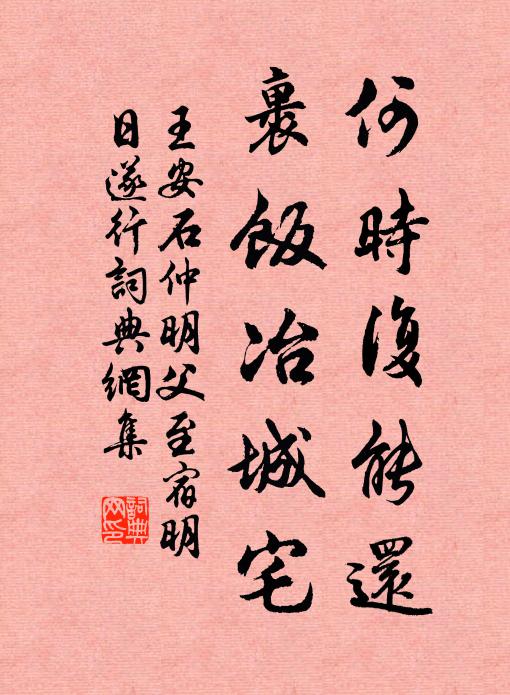 何時復能還
裹飯冶城宅
王安石仲明父至宿明
日遂行詞典網集
詞典
网印